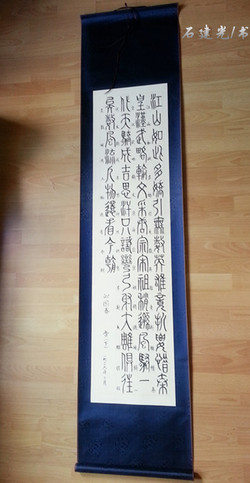 石建光/书
江山如此多嬌引無數英雄競折腰惜秦
皇漢武略輸文采唐宗宋祖稍遜風騷一
代天驕成吉思汗只識彎弓射大雕俱往
矣數風流人物還看今朝
沁园春 雪